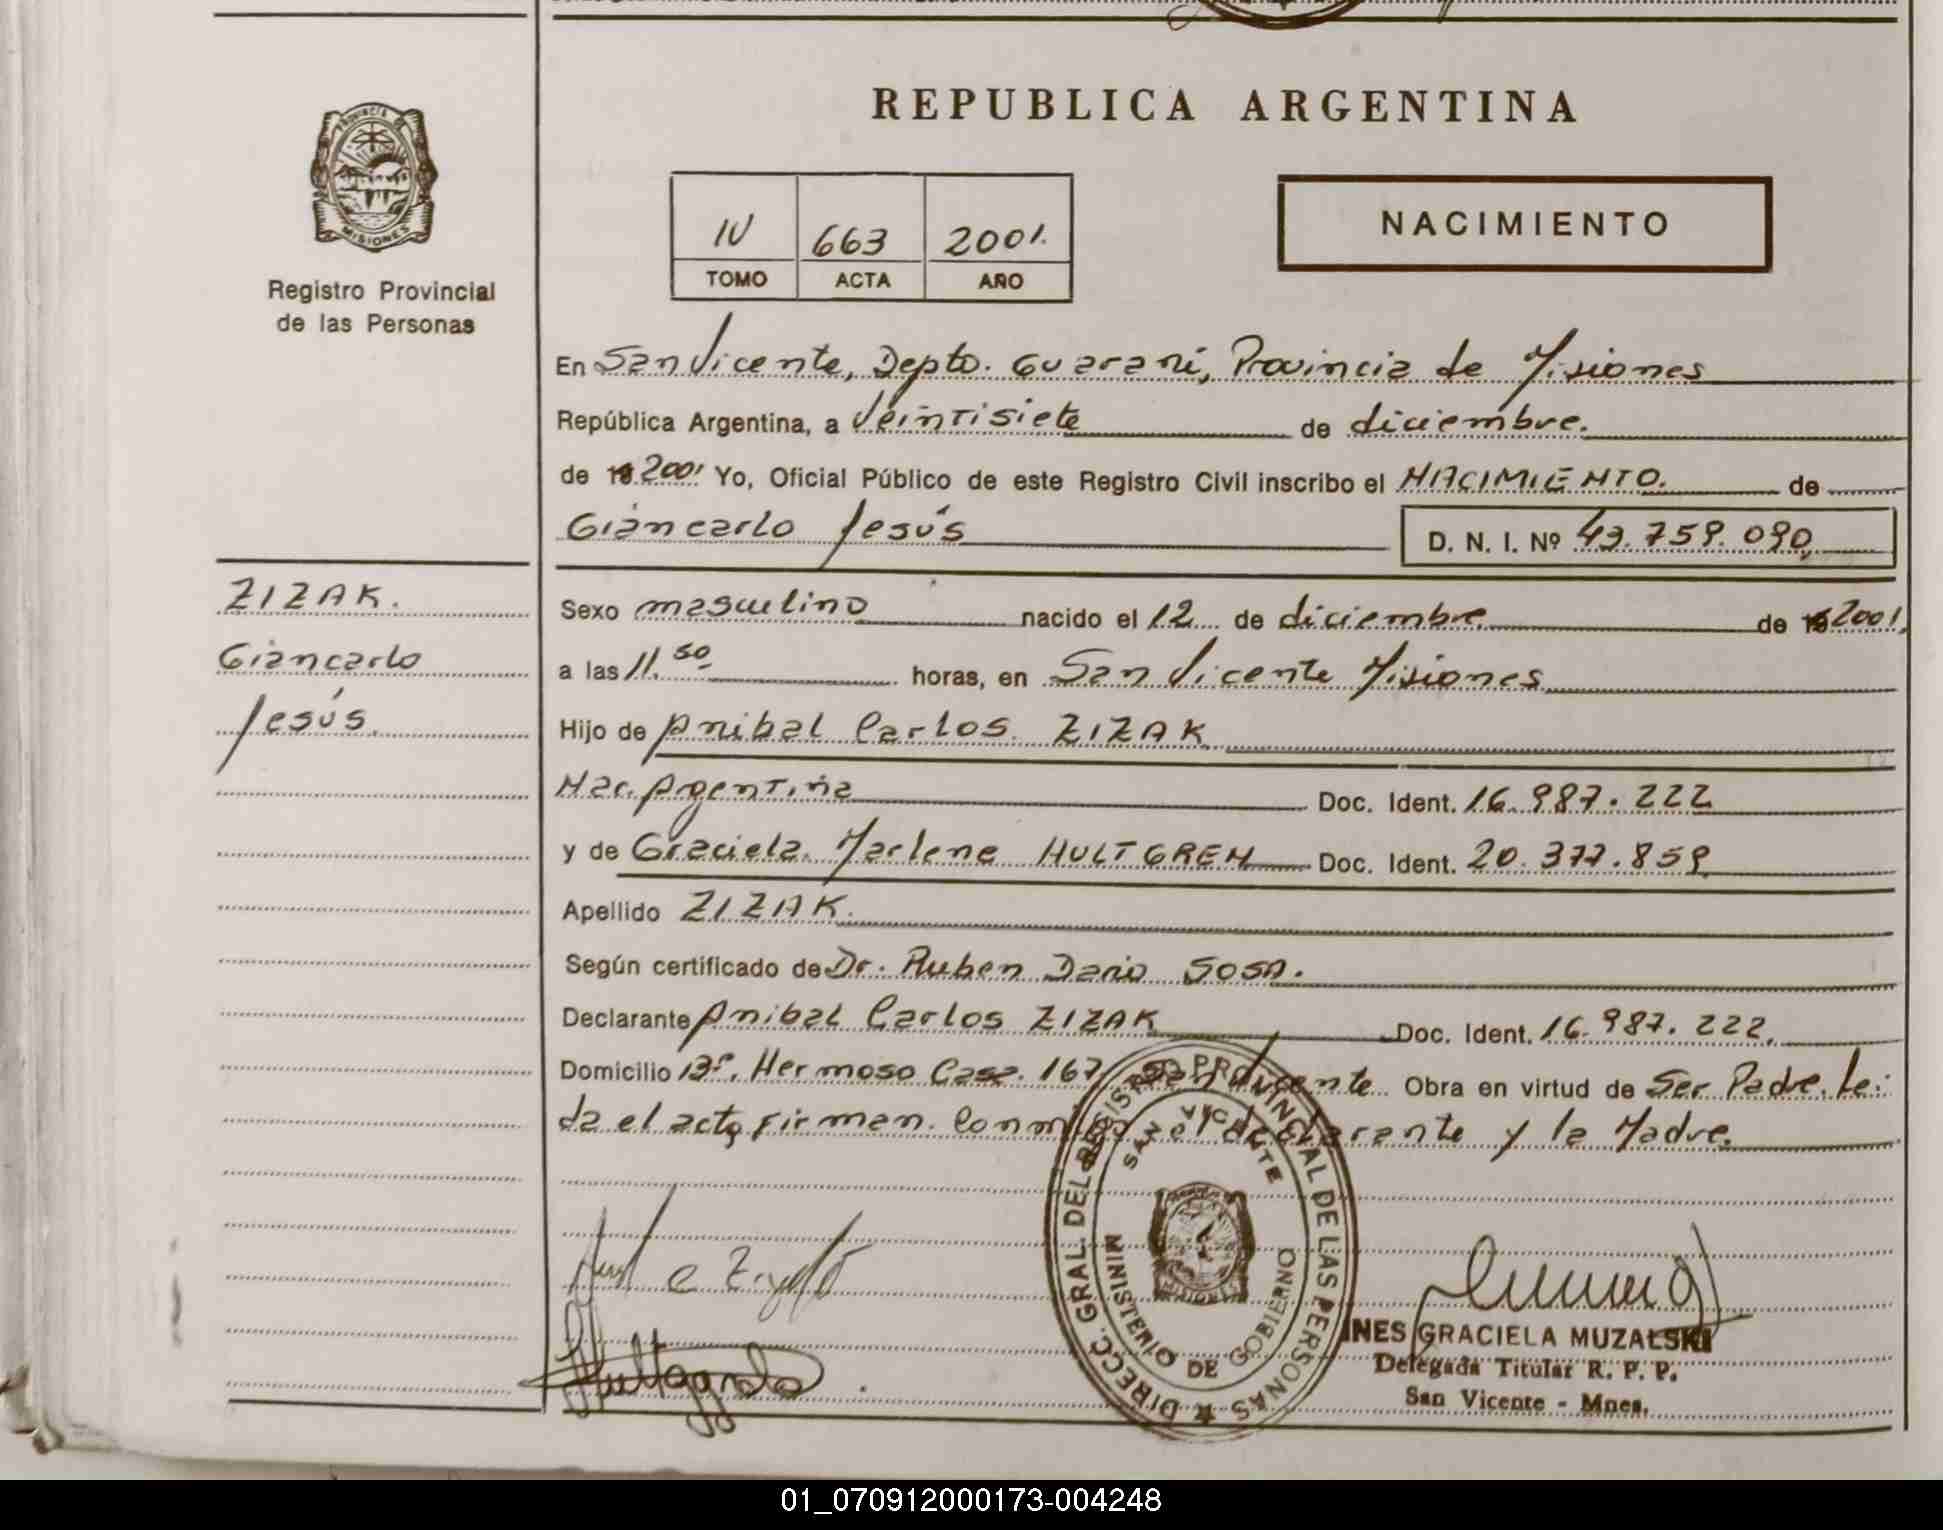 REPUBLICA ARGENTINA
PROVINCIA DE
MISIONES
Registro Provincial
de las Personas
IV 663 2001.
TOMO ACTA AÑO
NACIMIENTO
En San Vicente, Depto. Guarani, Provincia de Misiones
República Argentina, a veintisiete de diciembre.
de 19 2001 Yo, Oficial Público de este Registro Civil inscribo el NACIMIENTO. de
Giancarlo Jesús D. N. I. Nº 43.759.090,
ZIZAK.
Giancarlo
Jesús.
Sexo masculino nacido el 12 de diciembre de 19 2001.
a las 11.50 horas, en San Vicente Misiones
Hijo de Anibal Carlos ZIZAK
Nac. Argentina Doc. Ident. 16.987.222
y de Graciela Marlene HULTGREN Doc. Ident. 20.377.859
Apellido ZIZAK.
Según certificado de Dr. Ruben Dario SOSA.
Declarante Anibal Carlos ZIZAK Doc. Ident. 16.987.222.
Domicilio Bº. Hermoso Casa. 167 San Vicente Obra en virtud de Ser Padre. Lei
da el acta firman conmigo el declarante y la Madre.
DIRECC. GRAL. DEL REGISTRO PROVINCIAL DE LAS PERSONAS
SAN VICENTE
MINISTERIO DE GOBIERNO
INES GRACIELA MUZALSKI
Delegada Titular R. P. P.
San Vicente - Mnes.
01_070912000173-004248